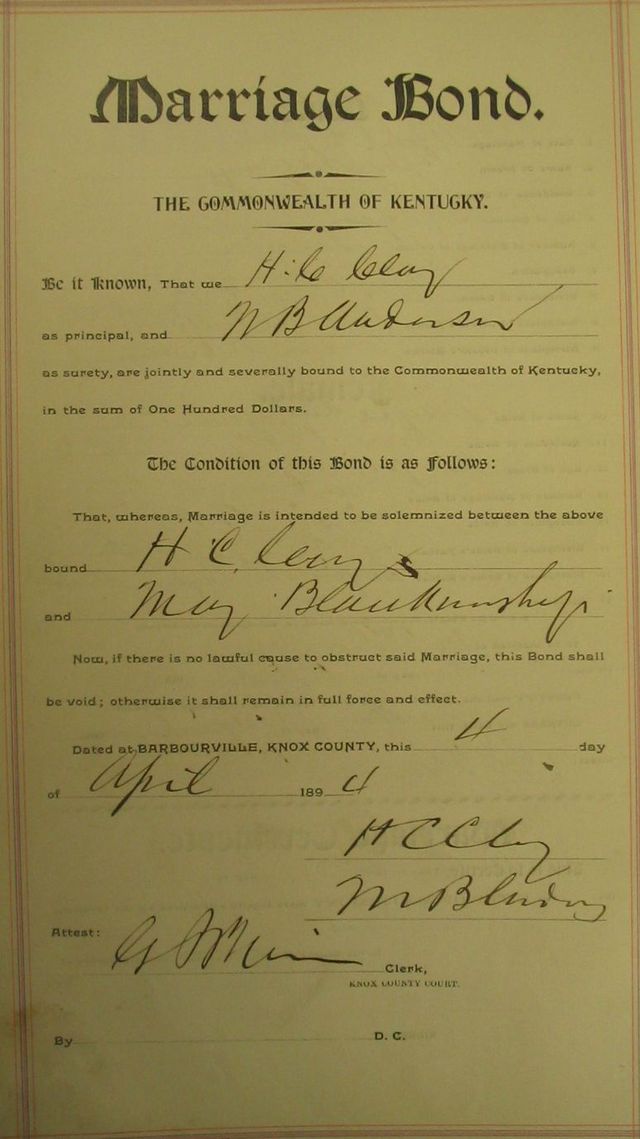 Marriage Bond.
THE COMMONWEALTH OF KENTUCKY.
Be it Known, That we H. C Clay
as principal, and W B Anderson
as surety, are jointly and severally bound to the Commonwealth of Kentucky,
in the sum of One Hundred Dollars.
The Condition of this Bond is as Follows:
That, whereas, Marriage is intended to be solemnized between the above
bound H C. Clay
and May Blankenship
Now, if there is no lawful cause to obstruct said Marriage, this Bond shall
be void; otherwise it shall remain in full force and effect.
Dated at BARBOURVILLE, KNOX COUNTY, this 4 day
of April 1894
H C Clay
Attest:
Clerk,
KNOX COUNTY COURT.
By D. C.